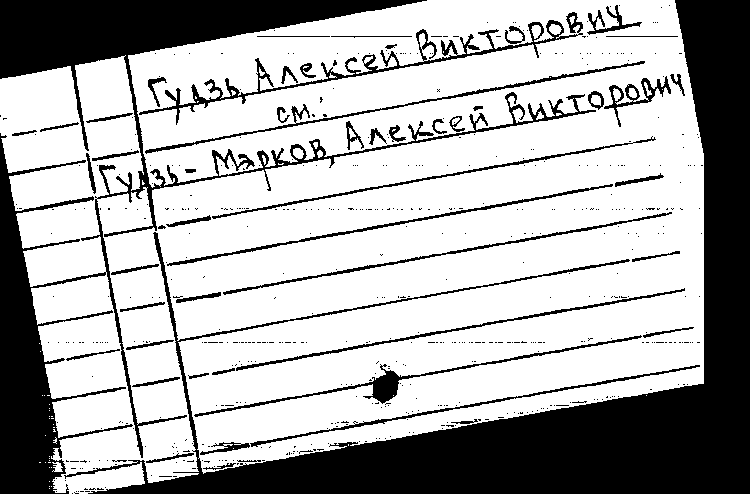 Гудзь, Алексей Викторович
см.:
Гудзь - Марков, Алексей Викторович